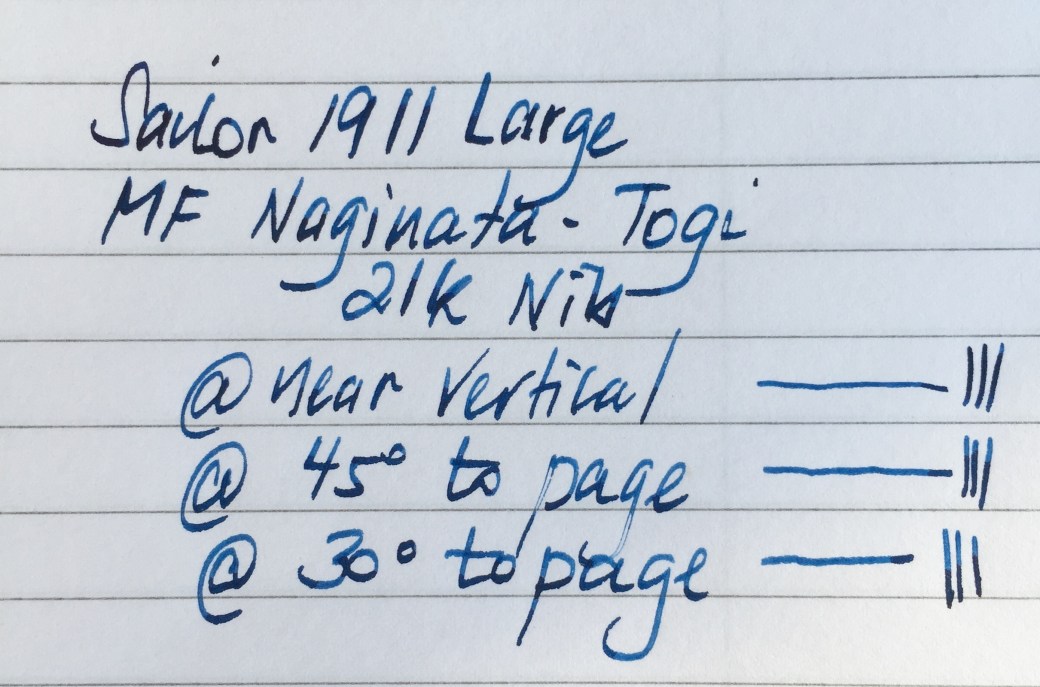 Sailor 1911 Large
MF Naginata-Togi
21k Nib
@ near vertical
@ 45° to page
@ 30° to page